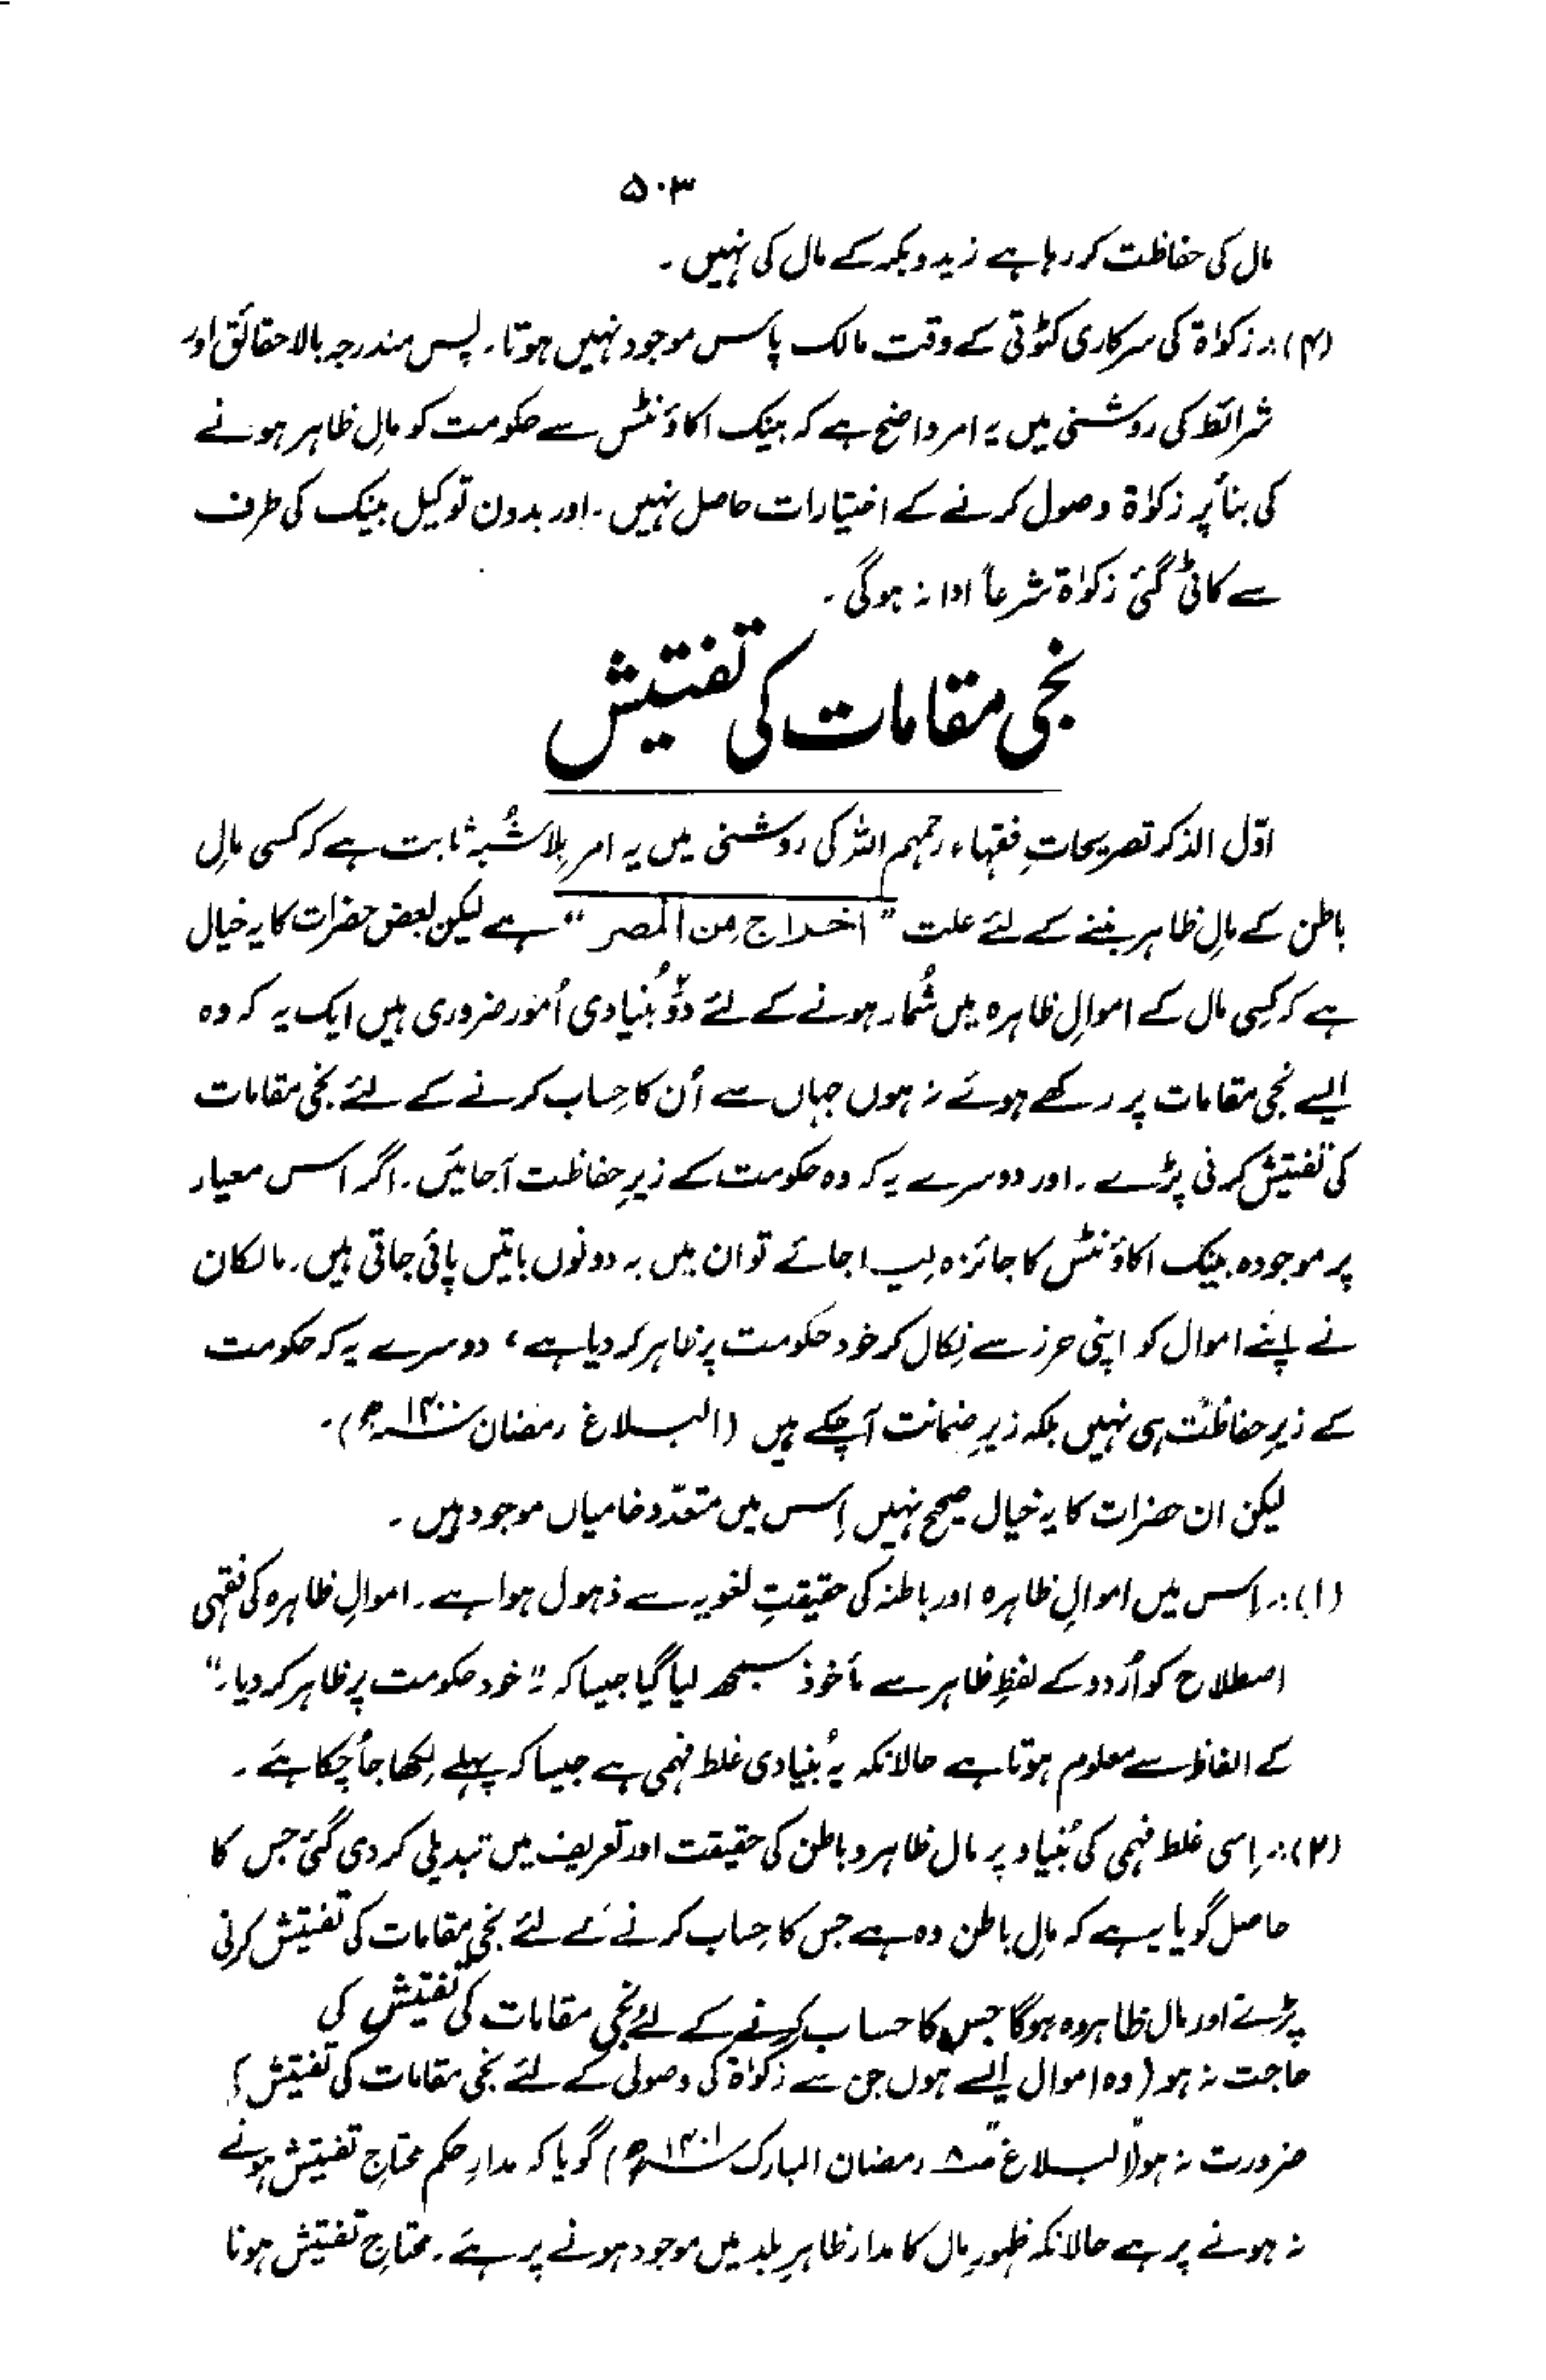 ۵۰۳
مال کی حفاظت کر رہا ہے زید و بکر کے مال کی نہیں ۔
(۴) :۔ زکوٰۃ کی سرکاری کٹوتی کے وقت مالک پاس موجود نہیں ہوتا ۔ پس مندرجہ بالا حقائق اور
شرائط کی روشنی میں یہ امر واضح ہے کہ بینک اکاؤنٹس سے حکومت کو مالِ ظاہر ہونے
کی بنأ پر زکوٰۃ وصول کرنے کے اختیارات حاصل نہیں ۔ اور بدون توکیل بینک کی طرف
سے کاٹی گئی زکوٰۃ شرعاً ادا نہ ہوگی ۔
نجی مقامات کی تفتیش
اوّل الذکر تصریحاتِ فقہاء رحمہم اللہ کی روشنی میں یہ امر بِلاشُبہ ثابت ہے کہ کسی مالِ
باطن کے مالِ ظاہر بننے کے لئے علت "اخراج من المصر" ہے لیکن بعض حضرات کا یہ خیال
ہے کہ کِسی مال کے اموالِ ظاہرہ میں شُمار ہونے کے لئے دوّ بُنیادی اُمور ضروری ہیں ایک یہ کہ وہ
ایسے نجی مقامات پر رکھے ہوئے نہ ہوں جہاں سے اُن کا حِساب کرنے کے لئے نجی مقامات
کی تفتیش کرنی پڑے ۔ اور دوسرے یہ کہ وہ حکومت کے زیرِ حفاظت آجائیں ۔ اگر اس معیار
پر موجودہ بینک اکاؤنٹس کا جائزہ لیا جائے تو ان میں یہ دونوں باتیں پائی جاتی ہیں ۔ مالکان
نے اپنے اموال کو اپنی حرز سے نِکال کر خود حکومت پر ظاہر کر دیا ہے ، دوسرے یہ کہ حکومت
کے زیرِ حفاظت ہی نہیں بلکہ زیرِ ضمانت آچکے ہیں (البلاغ رمضان ۱۴۰۰ھ) ۔
لیکن ان حضرات کا یہ خیال صحیح نہیں اِس میں متعدّد خامیاں موجود ہیں ۔
(۱) :۔ اِس میں اموالِ ظاہرہ اور باطنہ کی حقیقتِ لغویہ سے ذہول ہوا ہے ۔ اموالِ ظاہرہ کی فقہی
اصطلاح کو اُردو کے لفظِ ظاہر سے مأخوذ سمجھ لیا گیا جیسا کہ "خود حکومت پر ظاہر کر دیا ۔"
کے الفاظ سے معلوم ہوتا ہے حالانکہ یہ بُنیادی غلط فہمی ہے جیسا کہ پہلے لِکھا جا چُکا ہے ۔
(۲) :۔ اِسی غلط فہمی کی بُنیاد پر مال ظاہر و باطن کی حقیقت اور تعریف میں تبدیلی کر دی گئی جس کا
حاصل گویا یہ ہے کہ مالِ باطن وہ ہے جس کا حِساب کرنے کے لئے نجی مقامات کی تفتیش کرنی
پڑے اور مال ظاہر وہ ہوگا جس کا حساب کرنے کے لئے نجی مقامات کی تفتیش کی
حاجت نہ ہو (وہ اموال ایسے ہوں جن سے زکوٰۃ کی وصولی کے لئے نجی مقامات کی تفتیش کی
ضرورت نہ ہو (البلاغ صـ۸ رمضان المبارک ۱۴۰۱ھ) گویا کہ مدارِ حکم محتاجِ تفتیش ہونے
نہ ہونے پر ہے حالانکہ ظہورِ مال کا مدار ظاہرِ بلد میں موجود ہونے پر ہے ۔ محتاجِ تفتیش ہونا